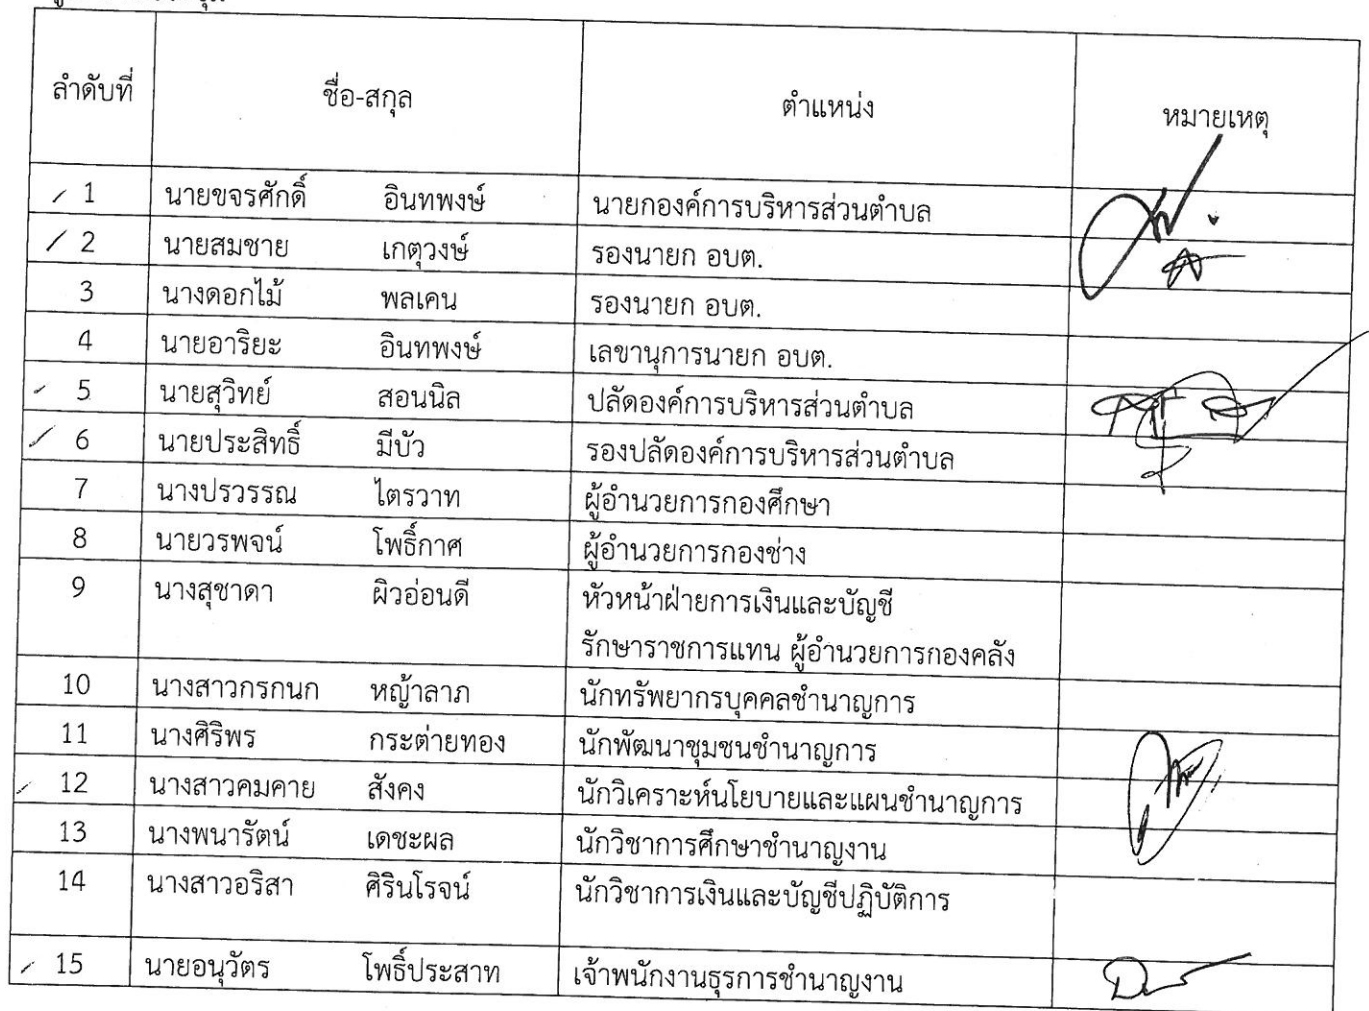 ลำดับที่ ชื่อ-สกุล ตำแหน่ง หมายเหตุ
1 นายขจรศักดิ์ อินทพงษ์ นายกองค์การบริหารส่วนตำบล
2 นายสมชาย เกตุวงษ์ รองนายก อบต.
3 นางดอกไม้ พลเคน รองนายก อบต.
4 นายอาริยะ อินทพงษ์ เลขานุการนายก อบต.
5 นายสุวิทย์ สอนนิล ปลัดองค์การบริหารส่วนตำบล
6 นายประสิทธิ์ มีบัว รองปลัดองค์การบริหารส่วนตำบล
7 นางปรวรรณ ไตรวาท ผู้อำนวยการกองศึกษา
8 นายวรพจน์ โพธิ์กาศ ผู้อำนวยการกองช่าง
9 นางสุชาดา ผิวอ่อนดี หัวหน้าฝ่ายการเงินและบัญชี
รักษาราชการแทน ผู้อำนวยการกองคลัง
10 นางสาวกรกนก หญ้าลาภ นักทรัพยากรบุคคลชำนาญการ
11 นางศิริพร กระต่ายทอง นักพัฒนาชุมชนชำนาญการ
12 นางสาวคมคาย สังคง นักวิเคราะห์นโยบายและแผนชำนาญการ
13 นางพนารัตน์ เดชะผล นักวิชาการศึกษาชำนาญงาน
14 นางสาวอริสา ศิรินโรจน์ นักวิชาการเงินและบัญชีปฏิบัติการ
15 นายอนุวัตร โพธิ์ประสาท เจ้าพนักงานธุรการชำนาญงาน